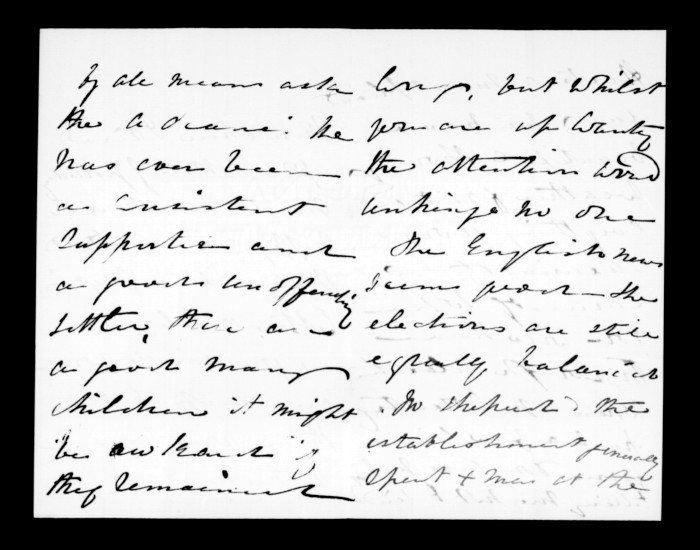 by all means ask
the                he
has ever been
a consistent
supporter and
a good unoffending
settler, there are
a good many
children it might
be awkward if
they remained
long, but whilst
you are up County
the attention would
unhinge no one
The English news
seems good - the
elections are still
equally balanced
the
establishment generally
spent Xmas at the